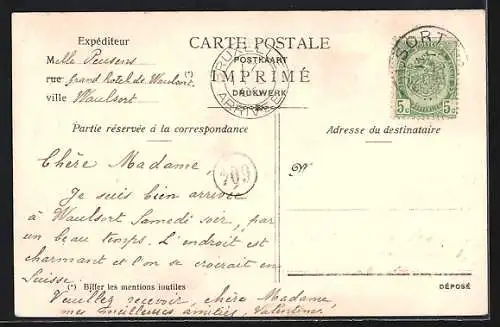 Expéditeur
CARTE POSTALE
POSTKAART
IMPRIMÉ
DRUKWERK
Melle Peusens
rue Grand hotel de Waulsort
ville Waulsort
BRUXELLES
ARRIVÉE
SORT
5c 5c
Partie réservée à la correspondance
Adresse du destinataire
209
M
Chère Madame
Je suis bien arrivée
à Waulsort Samedi soir, par
un beau temps. L'endroit est
charmant et l'on se croirait en
Suisse.
(*) Biffer les mentions inutiles
DÉPOSÉ
Veuillez recevoir, chère Madame,
mes meilleures amitiés, Valentine